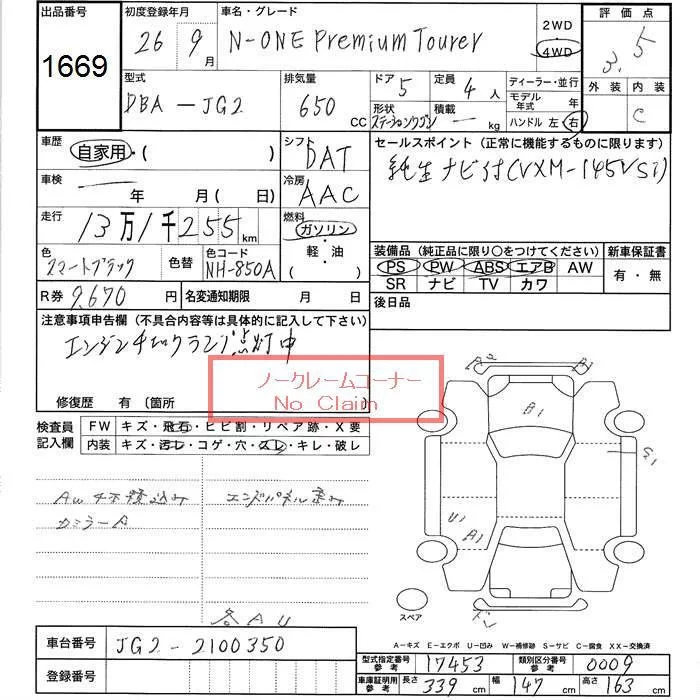 出品番号
1669
初度登録年月
26年 9月
車名・グレード
N-ONE Premium Tourer
2WD
4WD
評価点
3.5
外装 内装
C
型式
DBA-JG2
排気量
650 CC
ドア 5
形状 ステーションワゴン
定員 4 人
積載 — kg
ディーラー・並行
モデル年式 年
ハンドル 左 右
車歴
自家用・( )
車検
年 月(日)
走行
13万1千255km
色
スマートブラック
色替
色コード
NH-850A
シフト
DAT
冷房
AAC
燃料
ガソリン
・軽・油
( )
セールスポイント(正常に機能するものに限ります)
純正ナビ付(VXM-145VSi)
装備品(純正品に限り〇をつけてください)
PS PW ABS エアB AW
SR ナビ TV カワ
新車保証書
有・無
後日品
R券 9,670 円
名変通知期限 月 日
注意事項申告欄(不具合内容等は具体的に記入して下さい)
エンジンチェックランプ点灯中
ノークレームコーナー
No Claim
修復歴 有(箇所
検査員記入欄
FW キズ・飛石・ヒビ割・リペア跡・X要
内装 キズ・汚レ・コゲ・穴・スレ・キレ・破レ
AW 4本積込み
カミラーA
エンドパネル歪み
各AU
B1
S1
U1
A1
スペア
A-キズ E-エクボ U-凹み W-補修跡 S-サビ C-腐食 XX-交換済
車台番号
JG2-2100350
登録番号
型式指定番号 参考 17453
類別区分番号 参考 0009
車庫証明用 参考 長さ 339 cm 幅 147 cm 高さ 163 cm